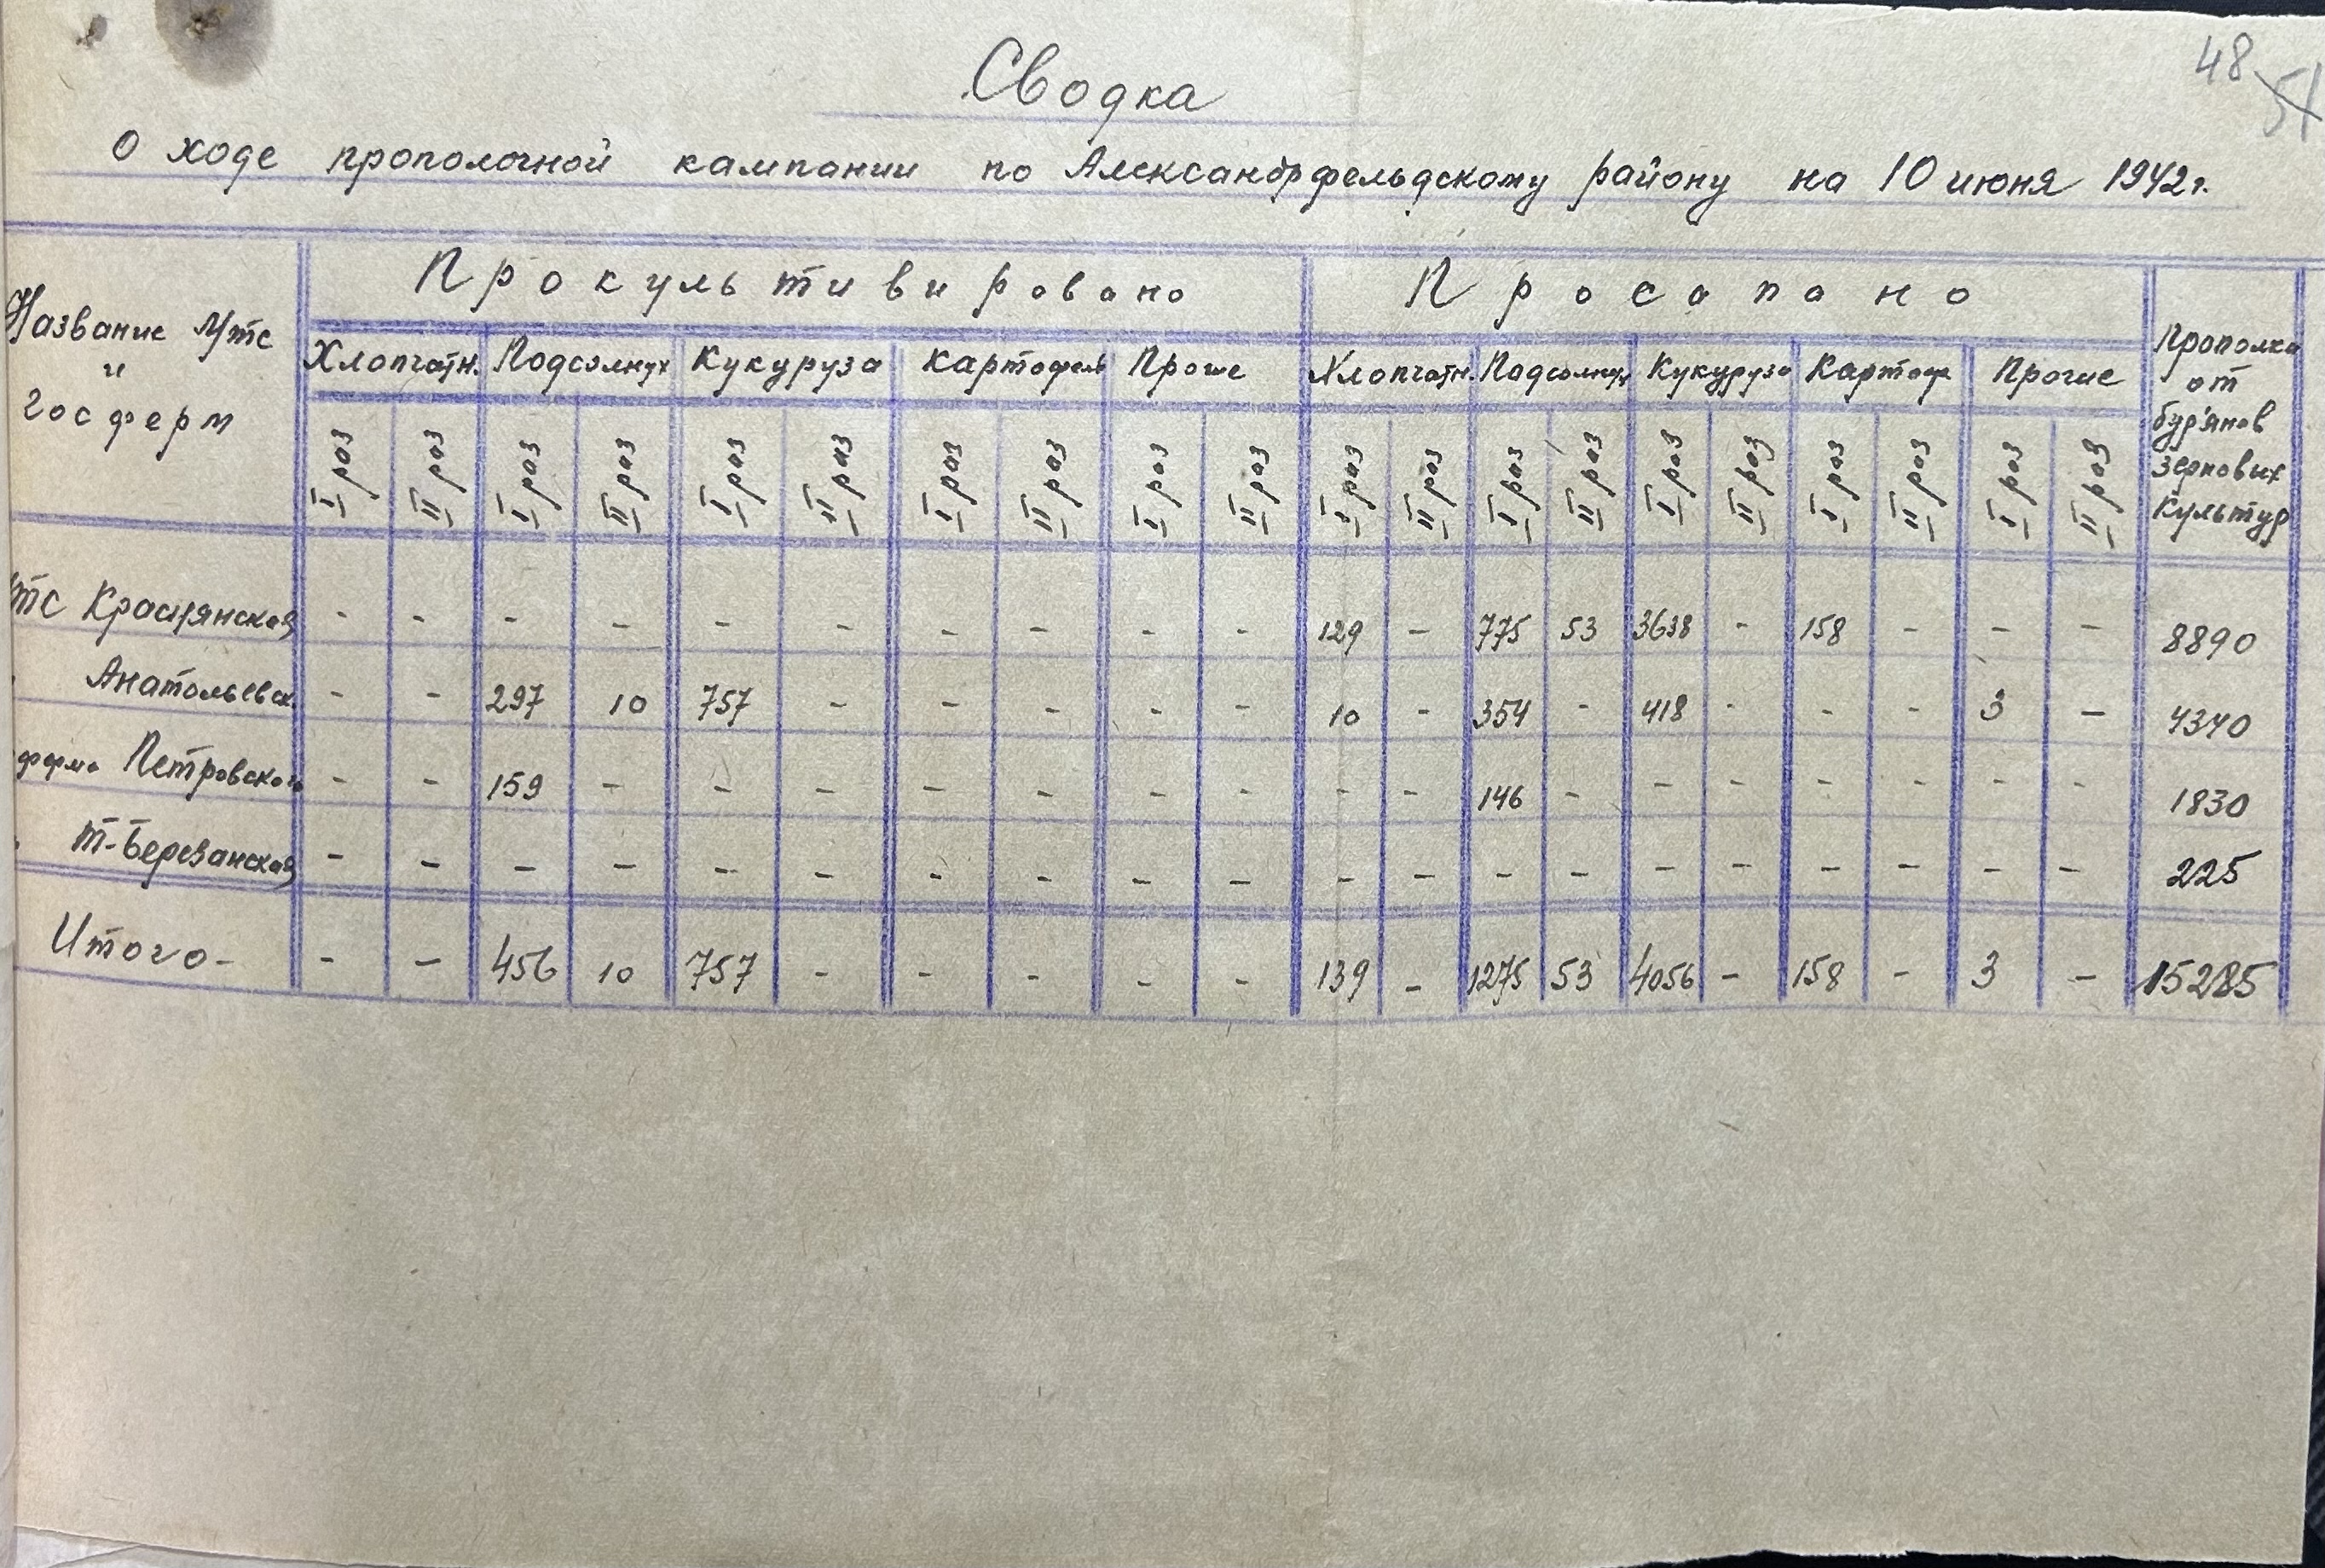 48 51
Сводка
О ходе прополочной кампании по Александрфельдскому району на 10 июня 1942 г.
Название Мтс и госферм
Прокультивировано Просапано Прополка от бур'янов зерновых культур
Хлопчатн. Подсолнух Кукуруза Картофель Прочие Хлопчатн. Подсолнух Кукуруза Картоф Прочие
I раз II раз I раз II раз I раз II раз I раз II раз I раз II раз I раз II раз I раз II раз I раз II раз I раз II раз I раз II раз
мтс Краснянская - - - - - - - - - - 129 - 775 53 3638 - 158 - - - 8890
Анатольевск. - - 297 10 757 - - - - - 10 - 354 - 418 - - - 3 - 4340
ферма Петровская - - 159 - - - - - - - - - 146 - - - - - - - 1830
Т-Березанская - - - - - - - - - - - - - - - - - - - - 225
Итого - - - 456 10 757 - - - - - 139 - 1275 53 4056 - 158 - 3 - 15285